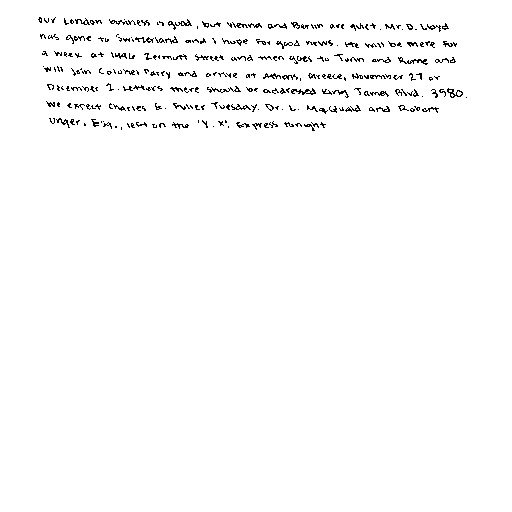 our London business is good, but Vienna and Berlin are quiet. Mr. D. Lloyd
has gone to Switzerland and I hope for good news. He will be there for
a week at 1496 Zermott Street and then goes to Turin and Rome and
will join Colonel Parry and arrive at Athens, Greece, November 27 or
December 2. Letters there should be addressed King James Blvd. 3580.
We expect Charles E. Fuller Tuesday. Dr. L. McQuaid and Robert
Unger, Esq., left on the "Y.X". Express tonight